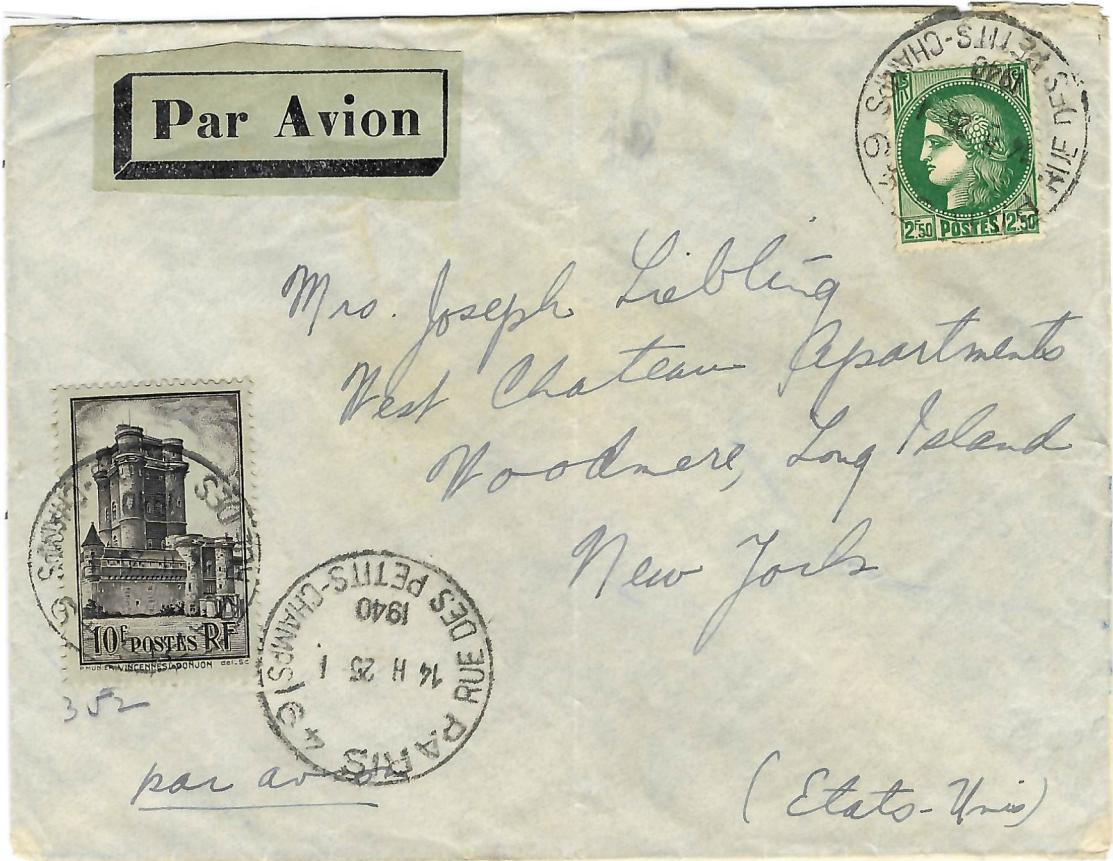 Par Avion
RUE DES PETITS-CHAMPS
1940
2F50 POSTES 2F50
Mrs. Joseph Liebling
West Chateau Apartments
Woodmere, Long Island
New York
10F POSTES RF
VINCENNES LE DONJON
352
PARIS 49 RUE DES PETITS-CHAMPS
14 H 25 1
1940
par avion
(Etats-Unis)